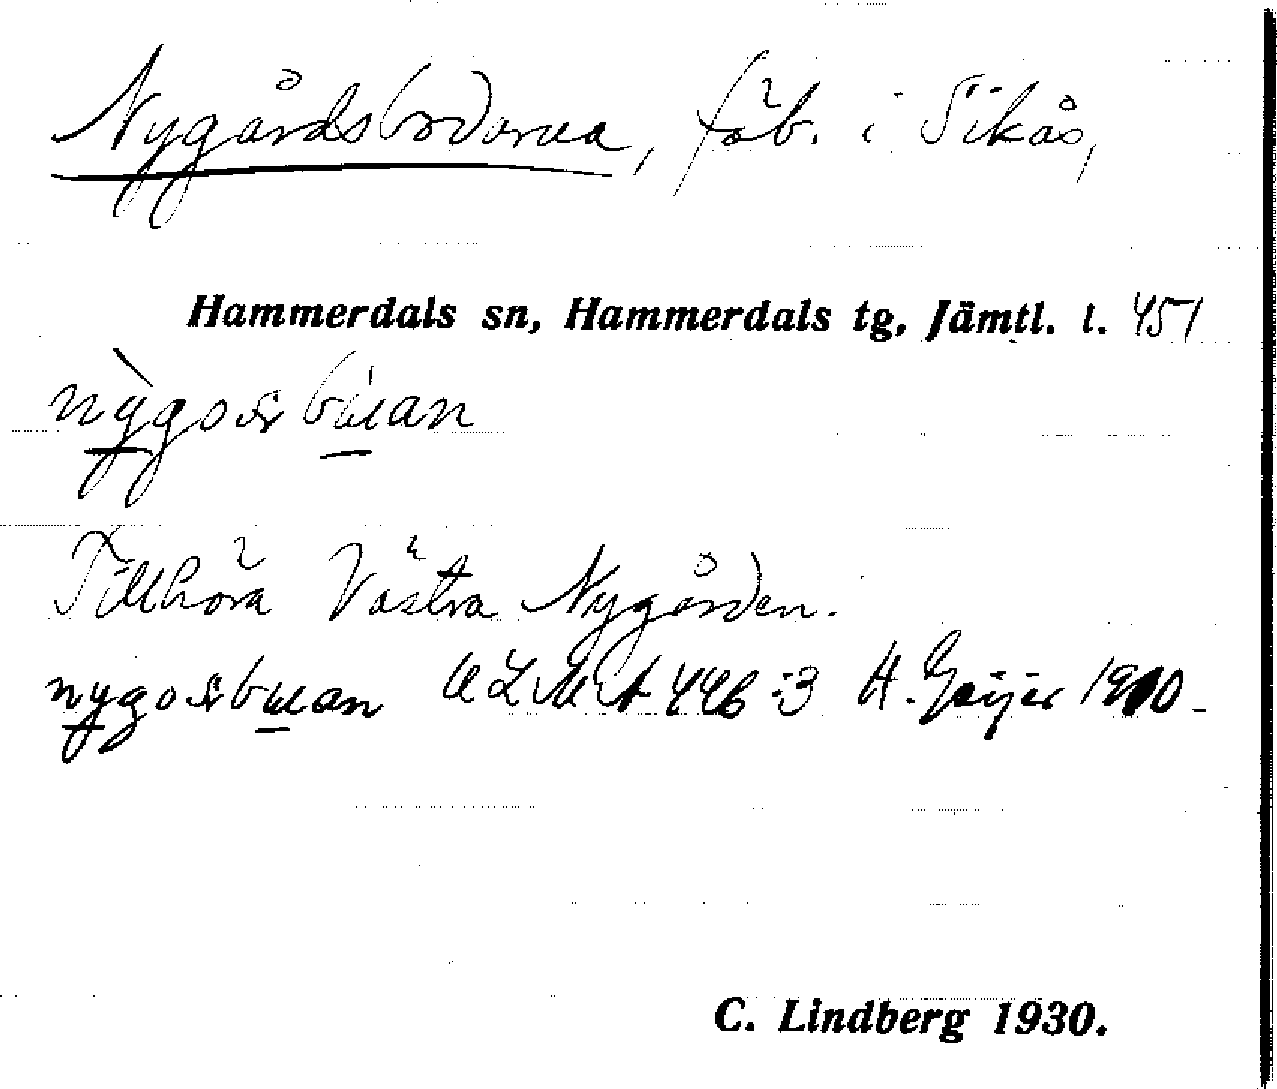 Nygårdsbodarna, fäb. i Sikås,
Hammerdals sn, Hammerdals tg, Jämtl. l. 451
Tillhöra Västra Nygården.
446:3 H. Geijer
C. Lindberg 1930.